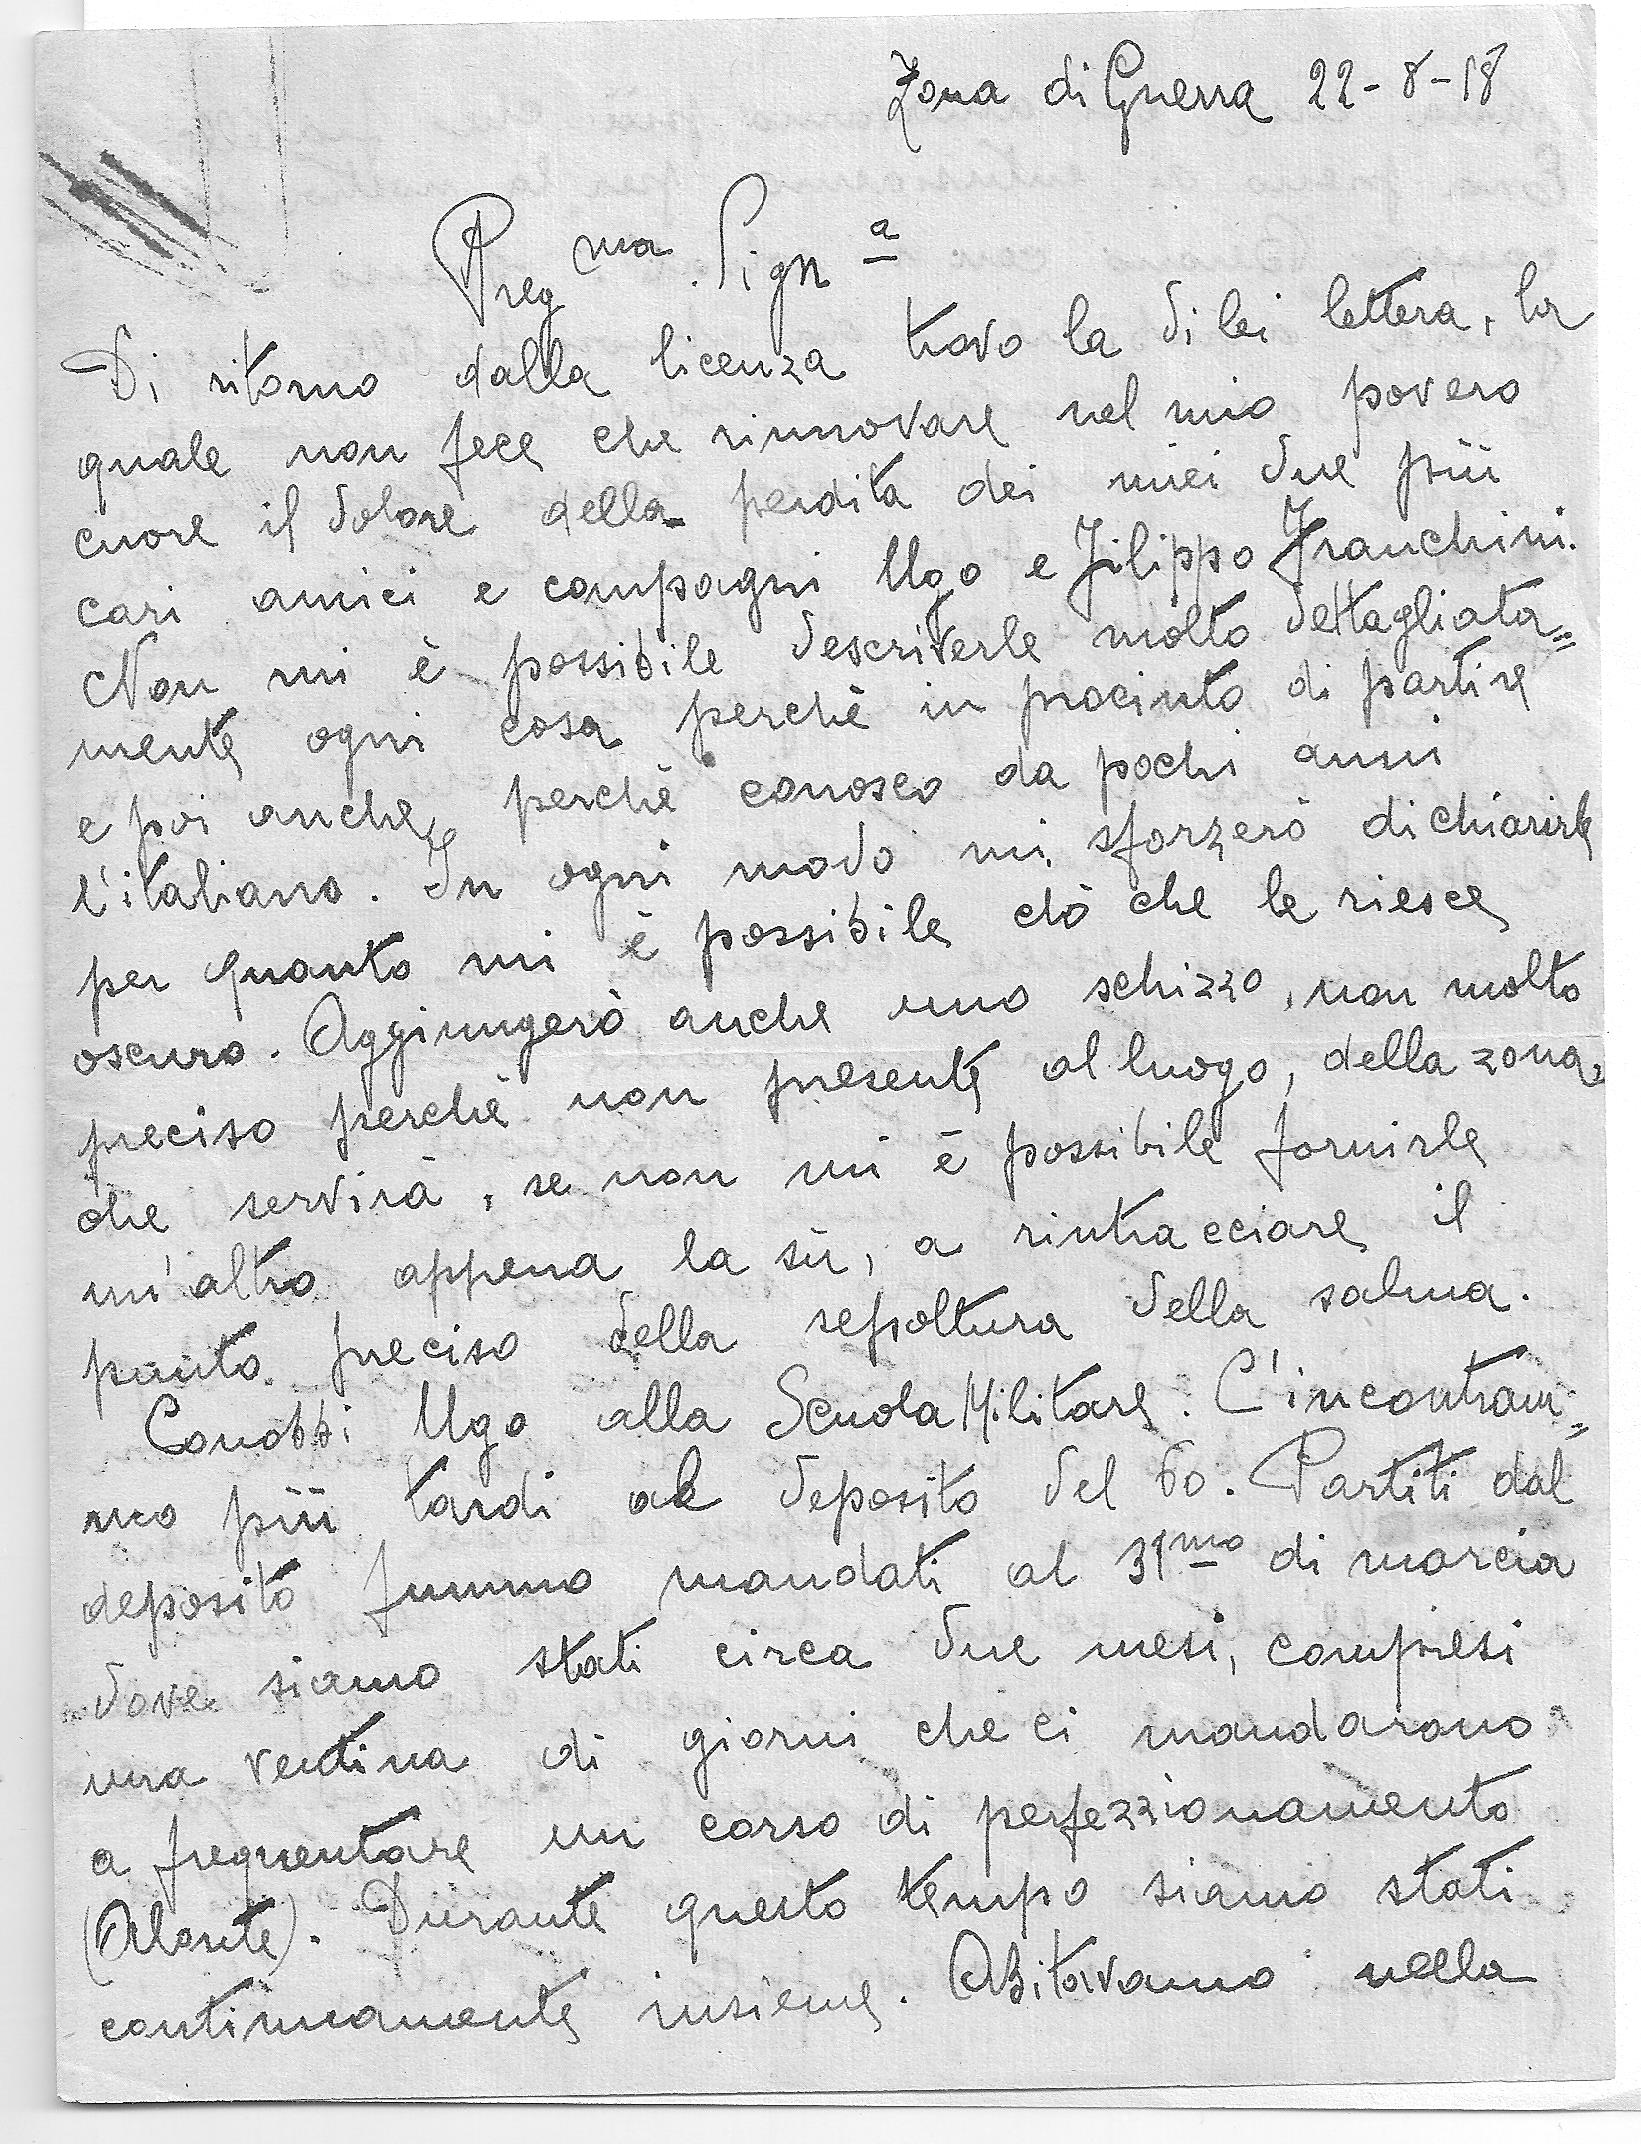 Zona di Guerra 22-8-18
Preg ma Sign a
Di ritorno dalla licenza trovo la di lei lettera, la
quale non fece che rinnovare nel mio povero
cuore il dolore della perdita dei miei due più
cari amici e compagni Ugo e Filippo Franchini.
Non mi è possibile descriverle molto dettagliata=
mente ogni cosa perchè in procinto di partire
e poi anche, perchè conosco da pochi anni
l'italiano. In ogni modo mi sforzerò di chiarirle
per quanto mi è possibile ciò che le riesce
oscuro. Aggiungerò anche uno schizzo, non molto
preciso perchè non presente al luogo, della zona,
che servirà, se non mi è possibile fornirle
un'altro appena la sù, a rintracciare il
punto preciso della sepoltura della salma.
Conobbi Ugo alla Scuola Militare. C'incontram=
mo più tardi al deposito del 60. Partiti dal
deposito fummo mandati al 31mo di marcia
dove siamo stati circa due mesi, compresi
una ventina di giorni che ci mandarono
a frequentare un corso di perfezzionamento
(Alonte). Durante questo tempo siamo stati
continuamente insieme. Abitavamo nella